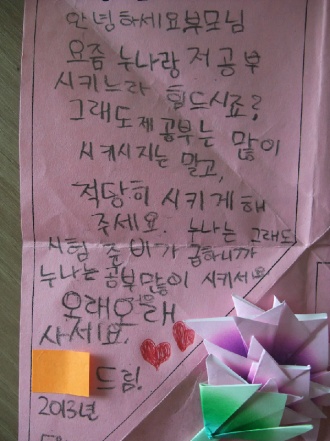 안녕하세요부모님
요즘 누나랑 저 공부
시키느라 힘드시죠?
그래도 제 공부는 많이
시키시지는 말고,
적당히 시키게 해
주세요. 누나는 그래도
시험 준비가 급하니까
누나는 공부많이 시키세요
오래오래
사세요.
드림!
2013년